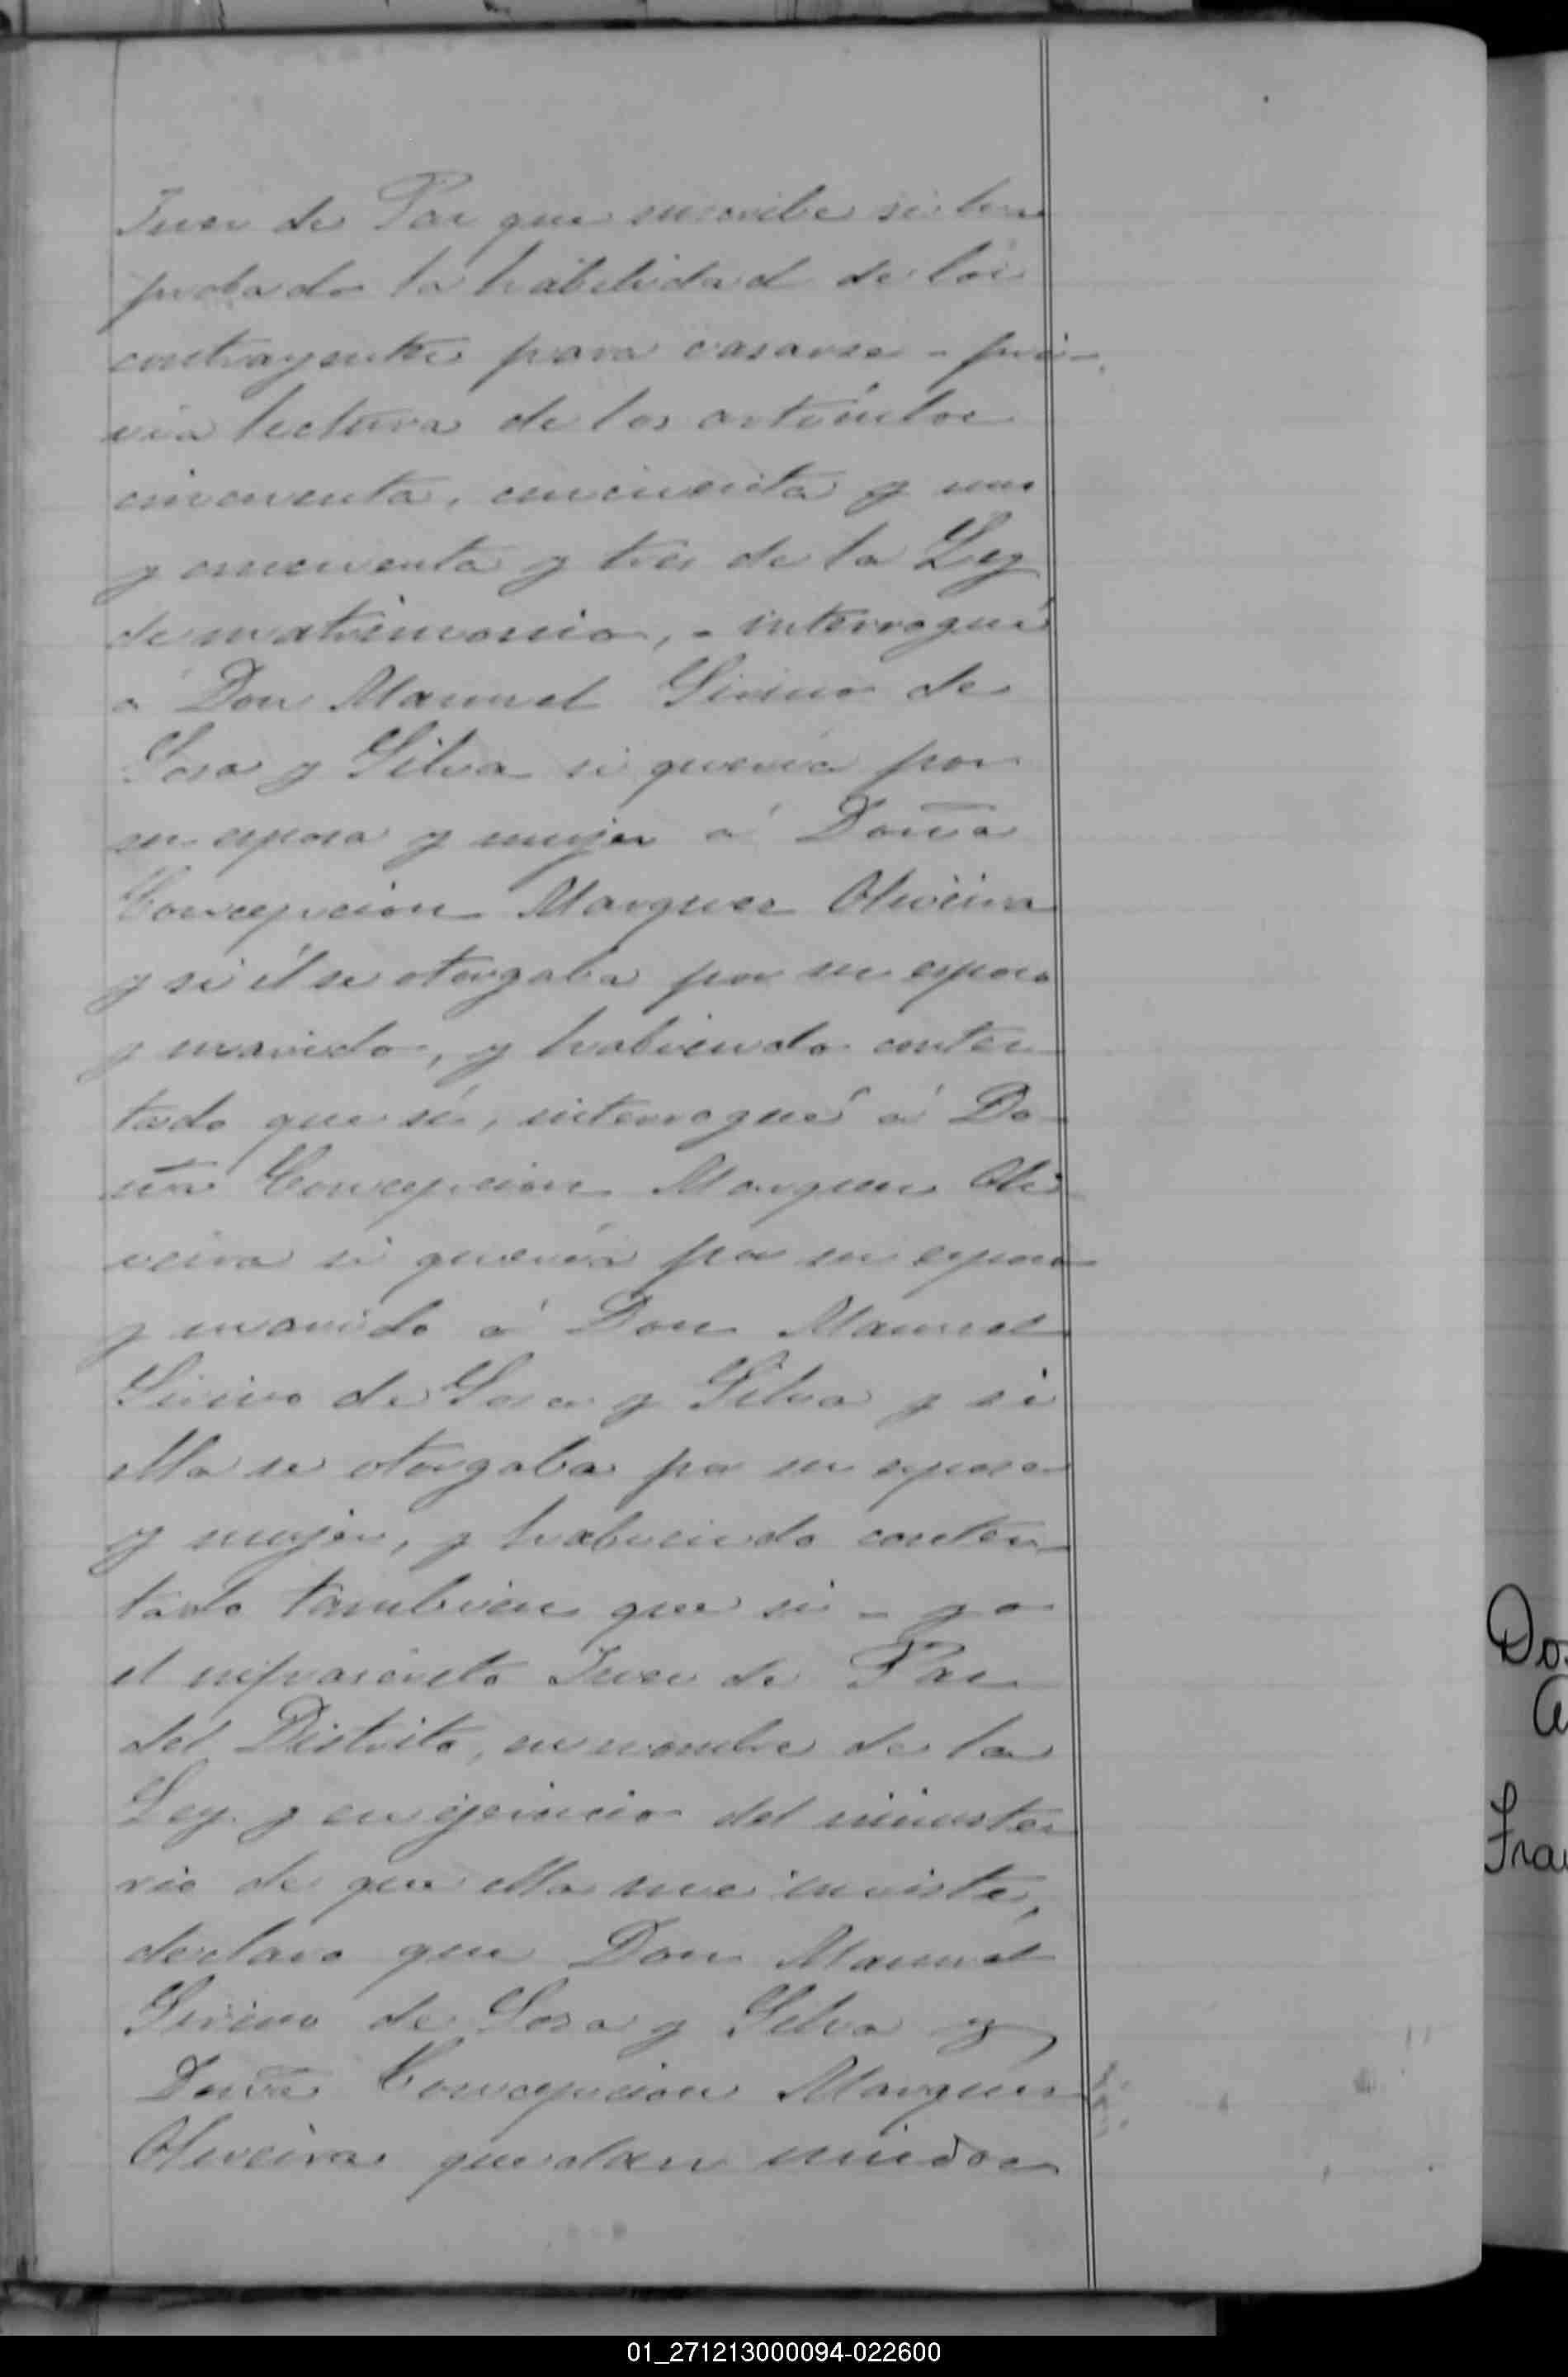 Juez de Paz que suscribe se ha
probado la habilidad de los
contrayentes para casarse - pré-
via lectura de los artículos
cincuenta, cincuenta y uno
y cincuenta y tres de la Ley
de matrimonio, - interrogué
á Don Manuel Sirino de
Sosa y Silva si quería por
su esposa y mujer á Doña
Concepcion Marquez Oliveira
y si él se otorgaba por su esposo
y marido, y habiendo contes-
tado que sí, interrogué á Do-
ña Concepcion Marquez Oli-
veira si quería por su esposo
y marido á Don Manuel
Sirino de Sosa y Silva y si
ella se otorgaba por su esposa
y mujer, y habiendo contes-
tado tambien que si - yo
el infrascrito Juez de Paz
del Distrito, en nombre de la
Ley y en ejercicio del ministe-
rio de que ella me inviste,
declaro que Don Manuel
Sirino de Sosa y Silva y
Doña Concepcion Marquez
Oliveira quedan unidos
Fra
01_271213000094-022600